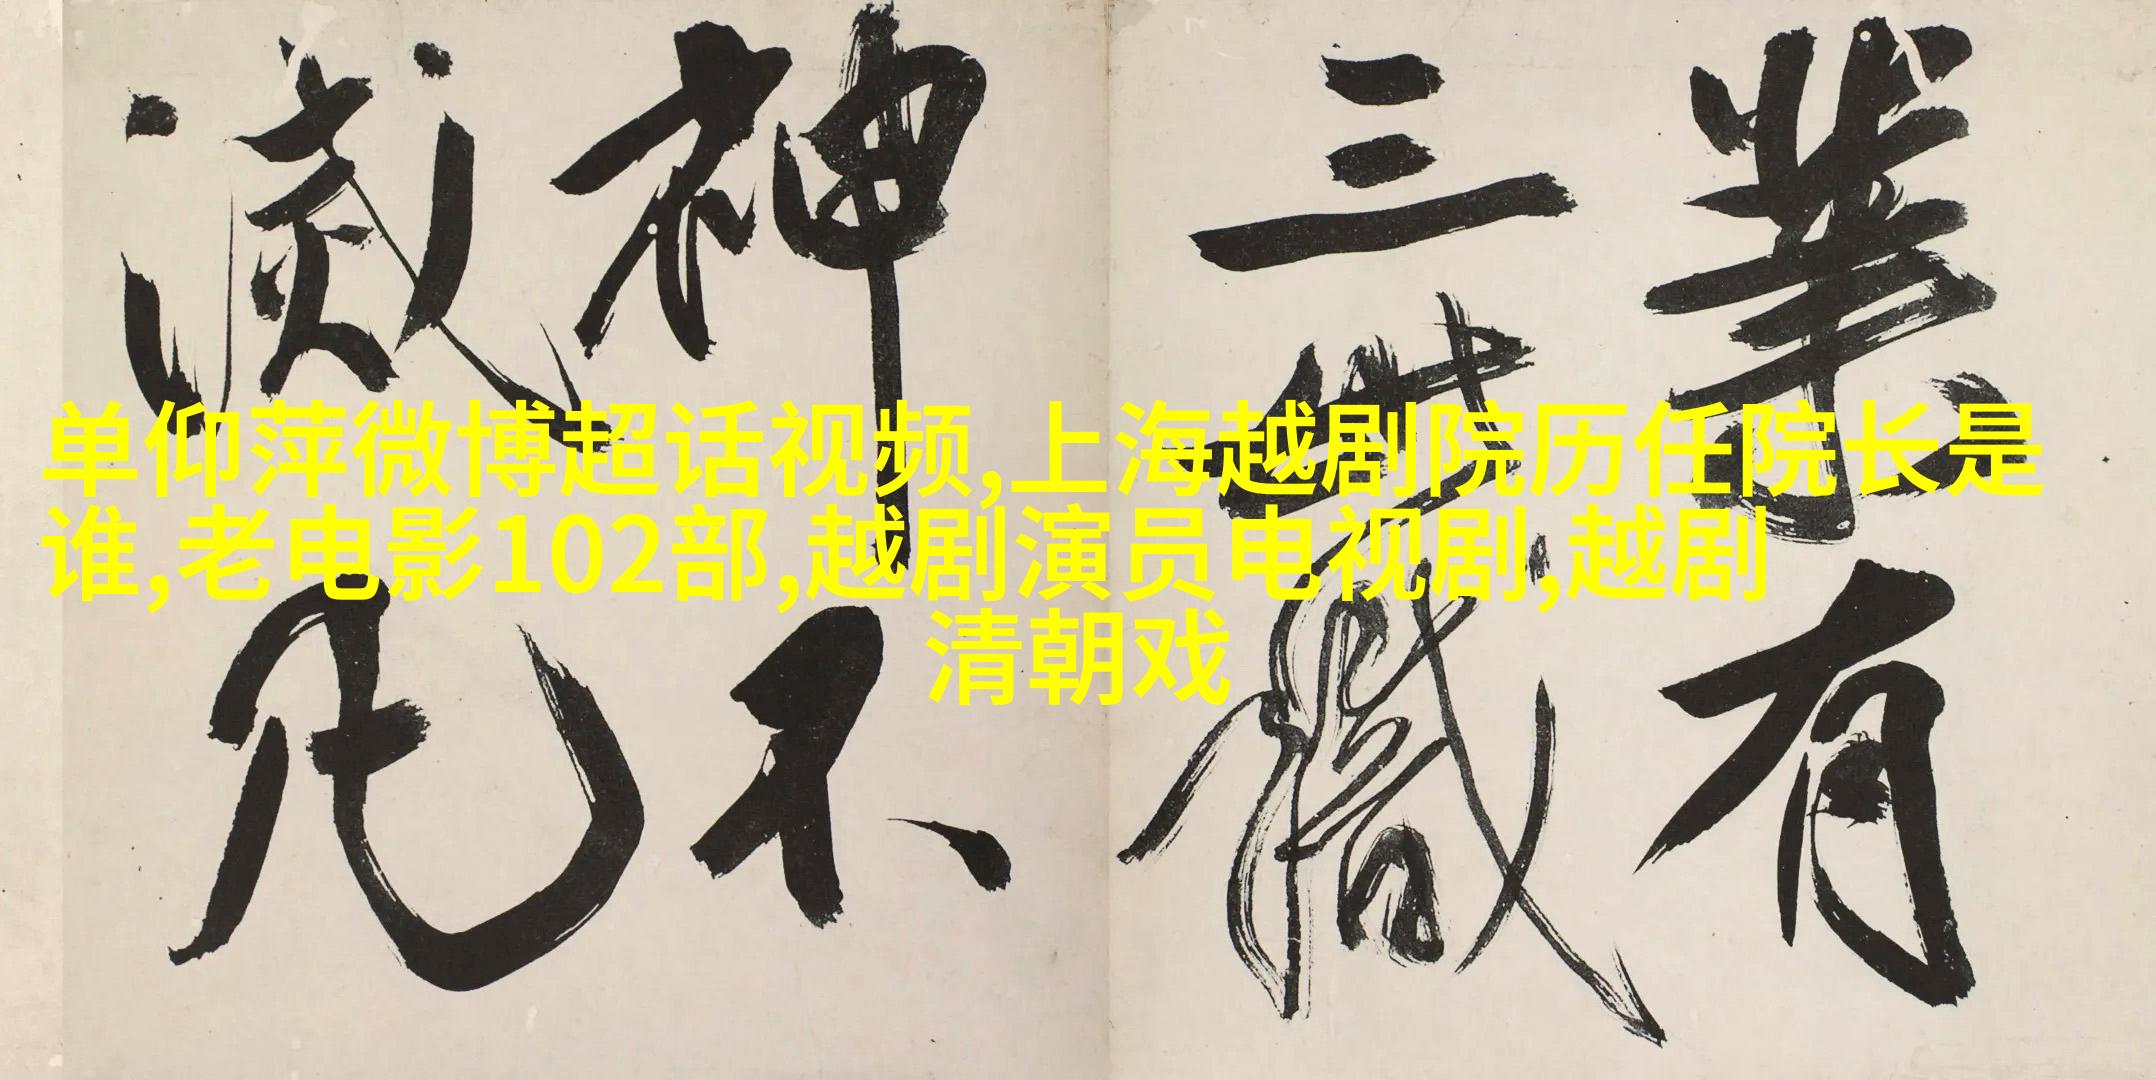 单仰萍微博超话视频,上海越剧院历任院长是
谁,老电影102部,越剧演员电视剧,越剧
清朝戏
業有
三世識
神不
滅凡